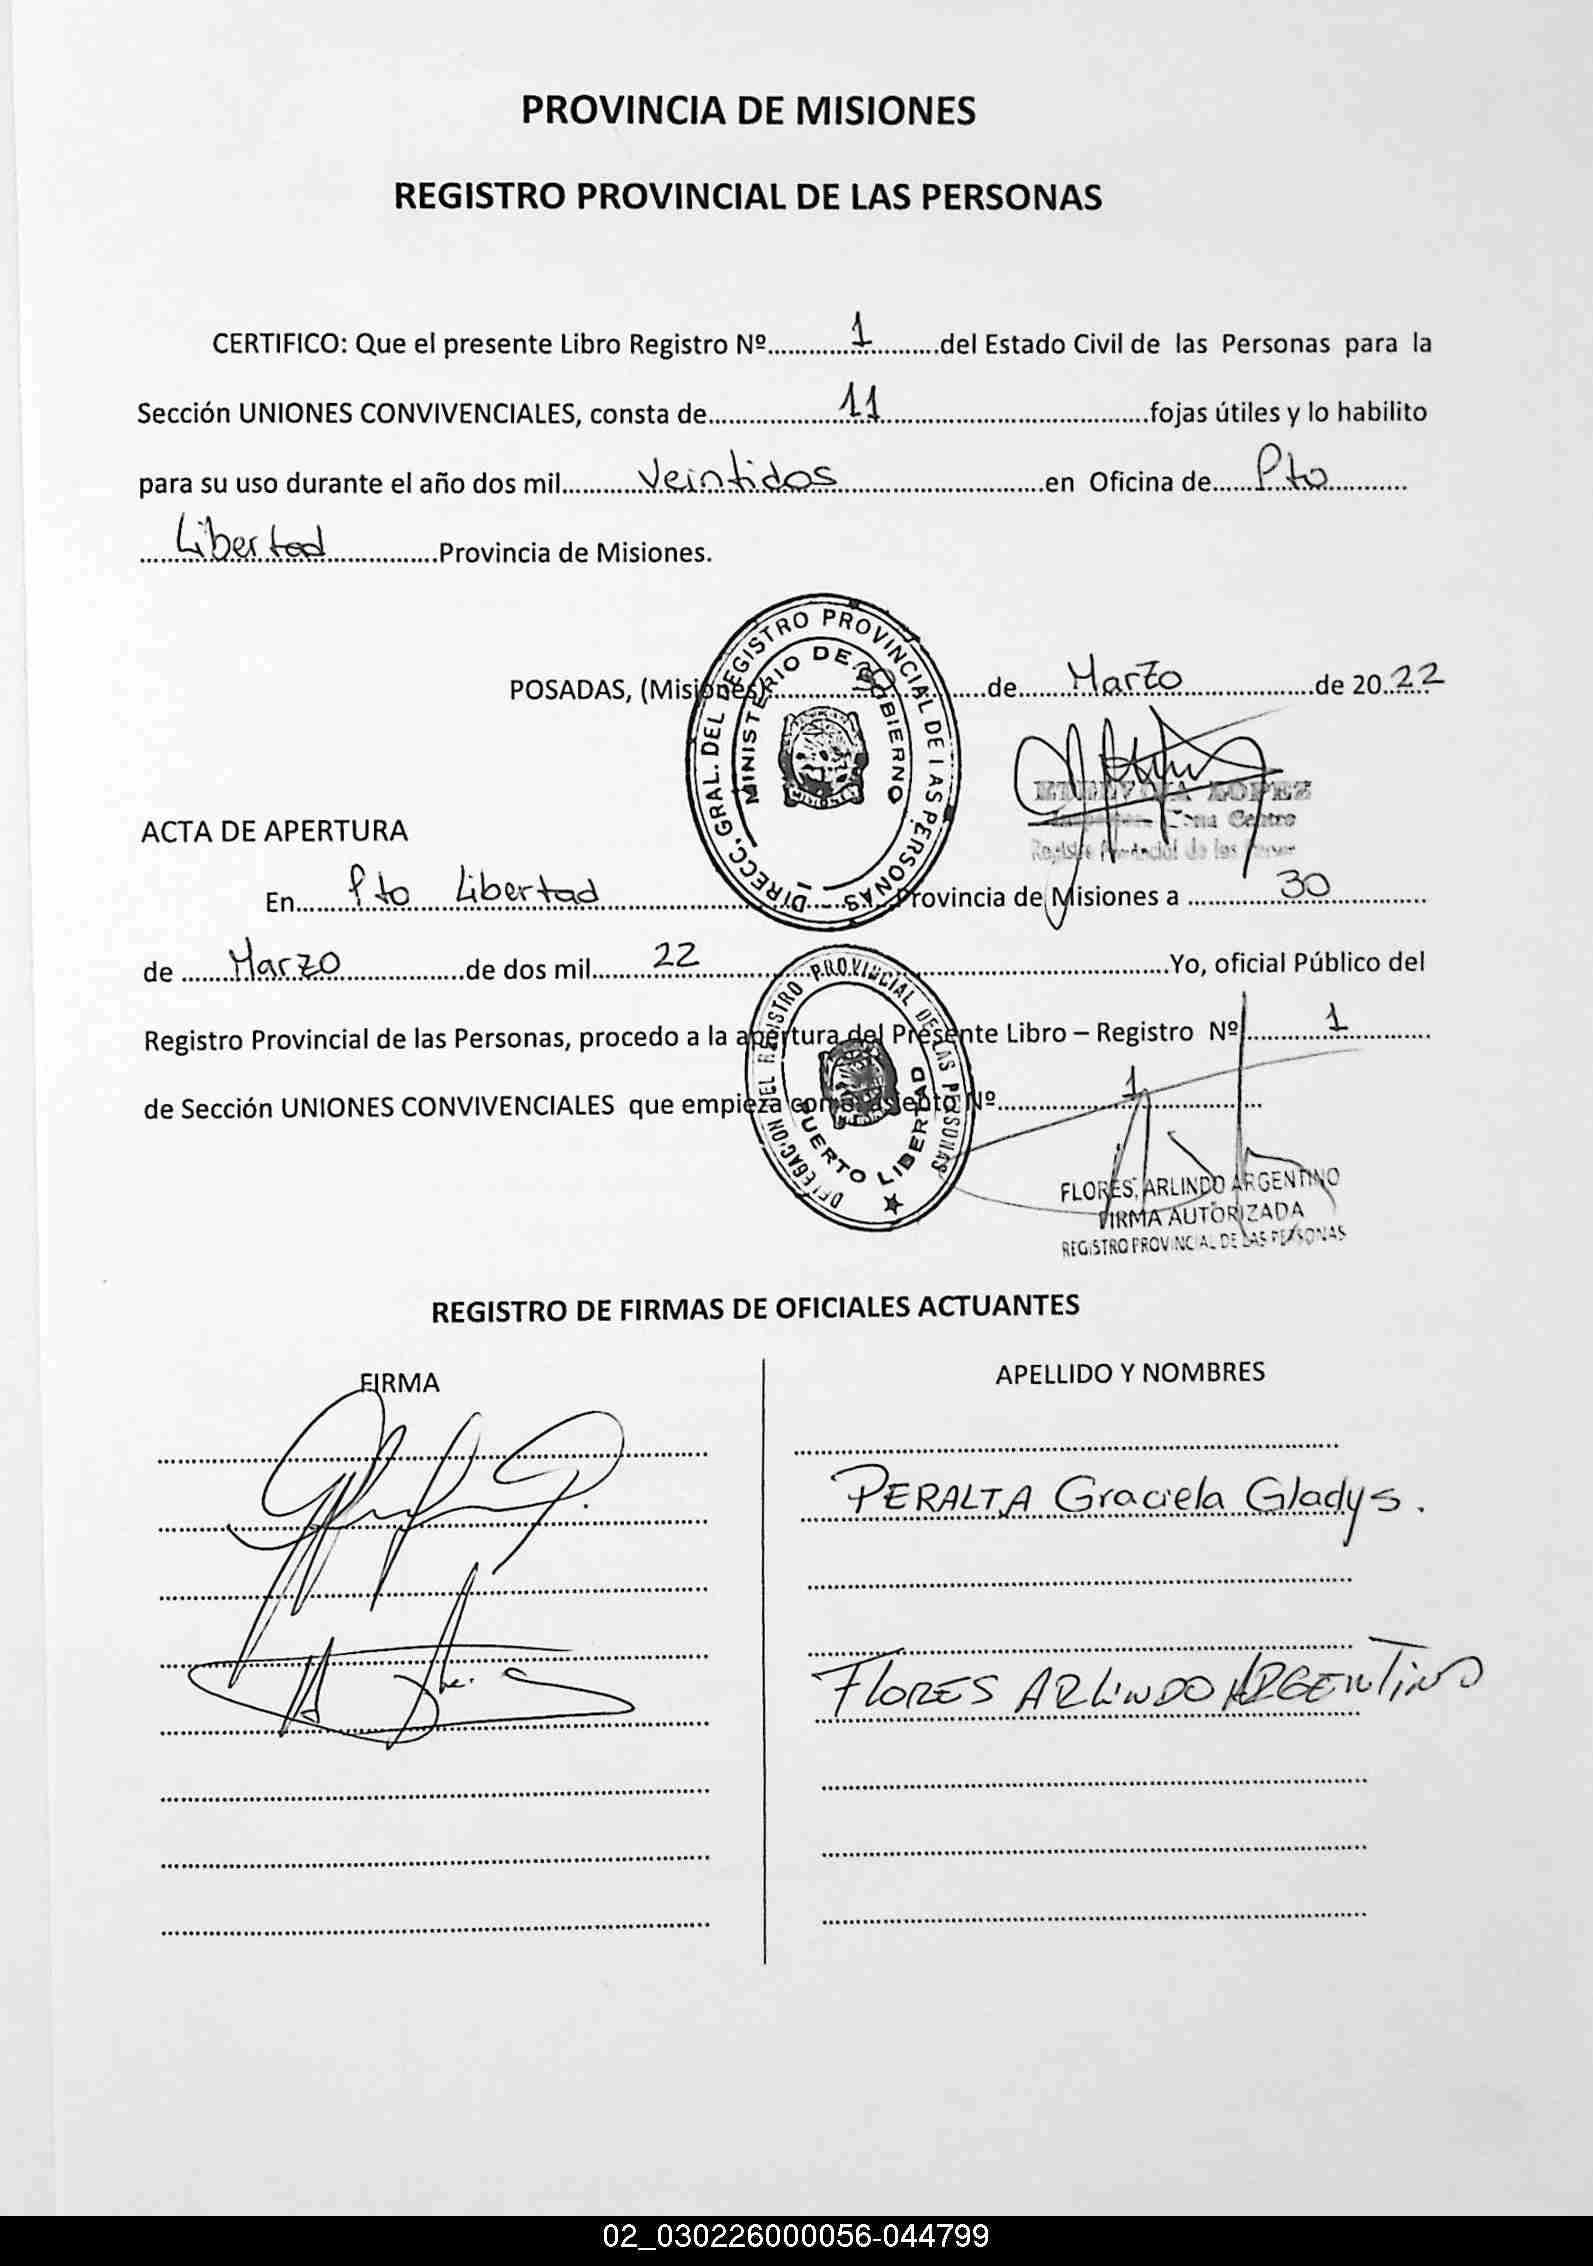 PROVINCIA DE MISIONES
REGISTRO PROVINCIAL DE LAS PERSONAS
CERTIFICO: Que el presente Libro Registro Nº 1 del Estado Civil de las Personas para la
Sección UNIONES CONVIVENCIALES, consta de 11 fojas útiles y lo habilito
para su uso durante el año dos mil veintidos en Oficina de Pto
Libertad Provincia de Misiones.
POSADAS, (Misiones) 30 de Marzo de 2022
DIRECC. GRAL. DEL REGISTRO PROVINCIAL DE LAS PERSONAS
MINISTERIO DE GOBIERNO
MISIONES
LOPEZ
Zona Centro
Registro Provincial de las
ACTA DE APERTURA
En Pto Libertad Provincia de Misiones a 30
de Marzo de dos mil 22 Yo, oficial Público del
Registro Provincial de las Personas, procedo a la apertura del Presente Libro – Registro Nº 1
de Sección UNIONES CONVIVENCIALES que empieza con asiento Nº 1
DELEGACION DEL REGISTRO PROVINCIAL DE LAS PERSONAS
PUERTO LIBERTAD
FLORES, ARLINDO ARGENTINO
FIRMA AUTORIZADA
REGISTRO PROVINCIAL DE LAS PERSONAS
REGISTRO DE FIRMAS DE OFICIALES ACTUANTES
FIRMA
APELLIDO Y NOMBRES
PERALTA Graciela Gladys.
FLORES ARLINDO ARGENTINO
02_030226000056-044799